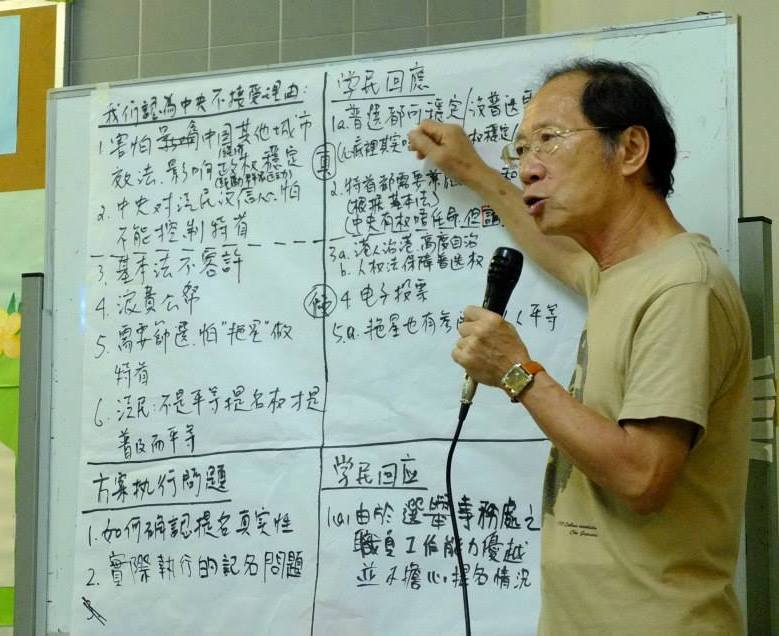 我们認為中央不接受理由:
1. 害怕中国其他城市
效法, 影响政权穩定
2. 中央对泛民没信心, 怕
不能控制特首
3. 基本法不容許
4. 浪費公帑
5. 需要篩選, 怕"艳星"做
特首
6. 泛民: 不是平等提名权才是
普及而平等
真
学民回應
1a. 普選都可穩定/没普選
2. 特首都需要
(根據基本法)
(中央有权唔任命, 但
3a. 港人治港, 高度自治
b. 人权法保障普選权
4 电子投票
5.a. 艳星也有参 人人平等
方案执行問題
1. 如何确認提名真实性
2. 實際執行的記名問題
学民回应
1(a) 由於選舉事務處之
職員工作能力優越
並不擔心提名情况